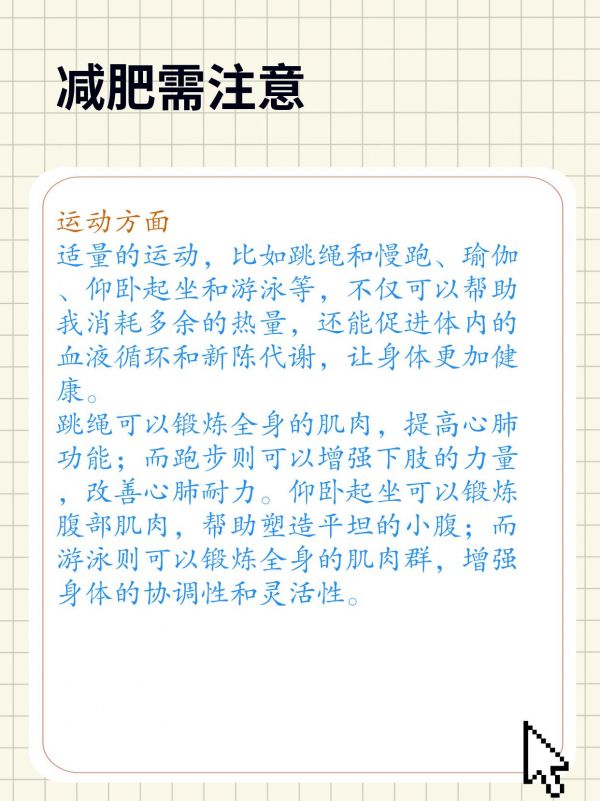 减肥需注意
运动方面
适量的运动，比如跳绳和慢跑、瑜伽
、仰卧起坐和游泳等，不仅可以帮助
我消耗多余的热量，还能促进体内的
血液循环和新陈代谢，让身体更加健
康。
跳绳可以锻炼全身的肌肉，提高心肺
功能；而跑步则可以增强下肢的力量
，改善心肺耐力。仰卧起坐可以锻炼
腹部肌肉，帮助塑造平坦的小腹；而
游泳则可以锻炼全身的肌肉群，增强
身体的协调性和灵活性。